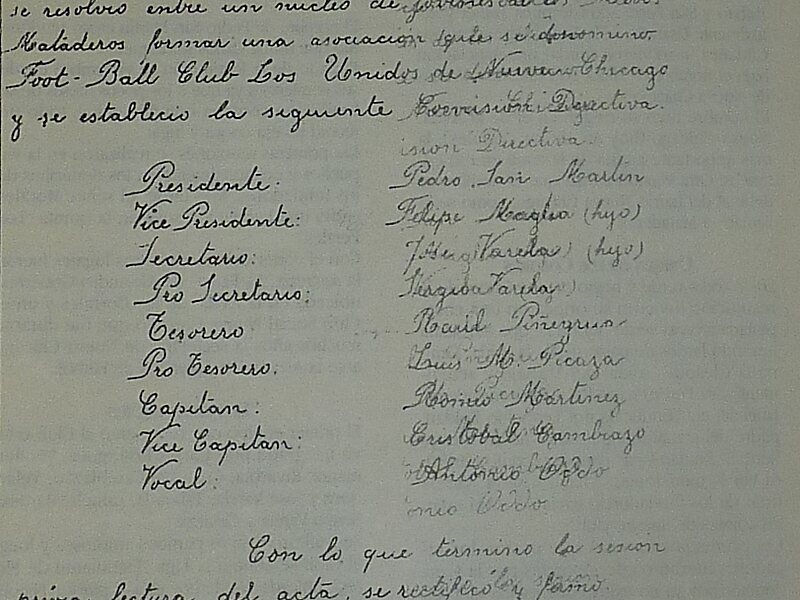 se resolvió entre un núcleo de jovenes de los
Mataderos formar una asociación que se denomino
Foot-Ball Club Los Unidos de Nueva Chicago
y se establecio la siguiente Comision Directiva.
Presidente: Pedro San Martin
Vice Presidente: Felipe Maglio (hijo)
Secretario: (hijo)
Pro Secretario: Varela
Tesorero Raúl
Pro Tesorero. Luis M. Picaza
Capitan: Romeo Martinez
Vice Capitan: Cristobal Cambrazo
Vocal: Antonio Oddo
Con lo que termino la sesion
previa lectura del acta, se rectificó y firmo.